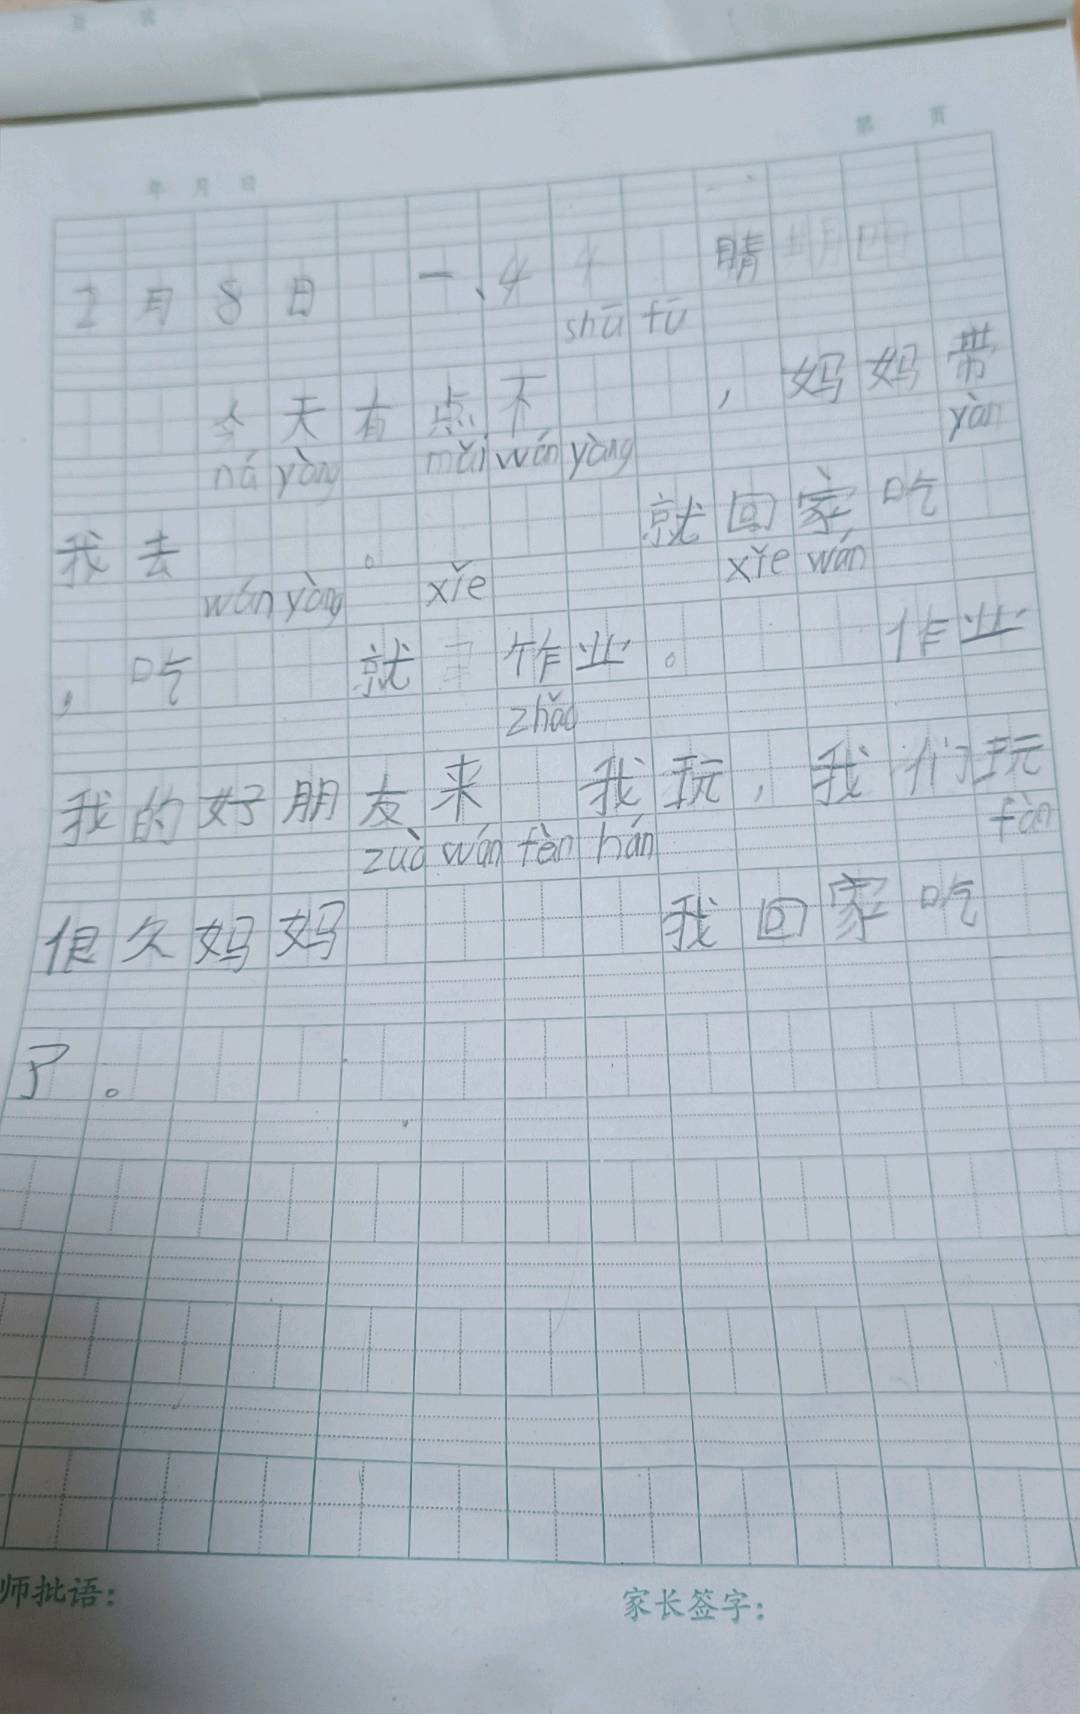 第 页
年 月 日
2月8日 一、4 晴
shū fū
今天有点不 ，妈妈带
ná yàng mǎi wán yàng yàn
我去 。 就回家吃
wán yàng xǐe xǐe wán
，吃 就 作业。 作业
zhǎo
我的好朋友来 我玩，我们玩
zuò wán fèn hán fàn
很久妈妈 我回家吃
了。
师批语：
家长签字：